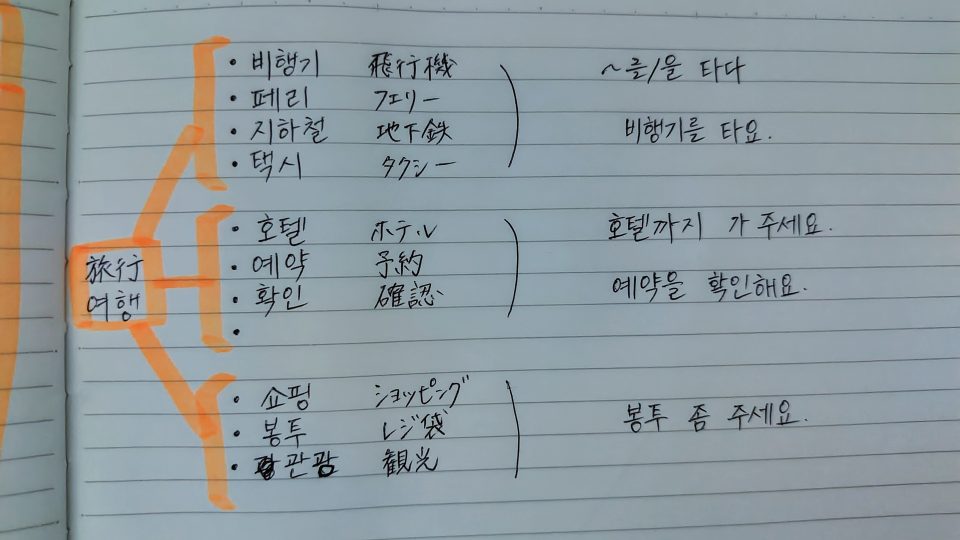 ・비행기 飛行機 ~를/을 타다
・페리 フェリー
・지하철 地下鉄 비행기를 타요.
・택시 タクシー
・호텔 ホテル 호텔까지 가 주세요.
旅行 ・예약 予約
여행 ・확인 確認 예약을 확인해요.
・
・쇼핑 ショッピング
・봉투 レジ袋 봉투 좀 주세요.
・관광 観光